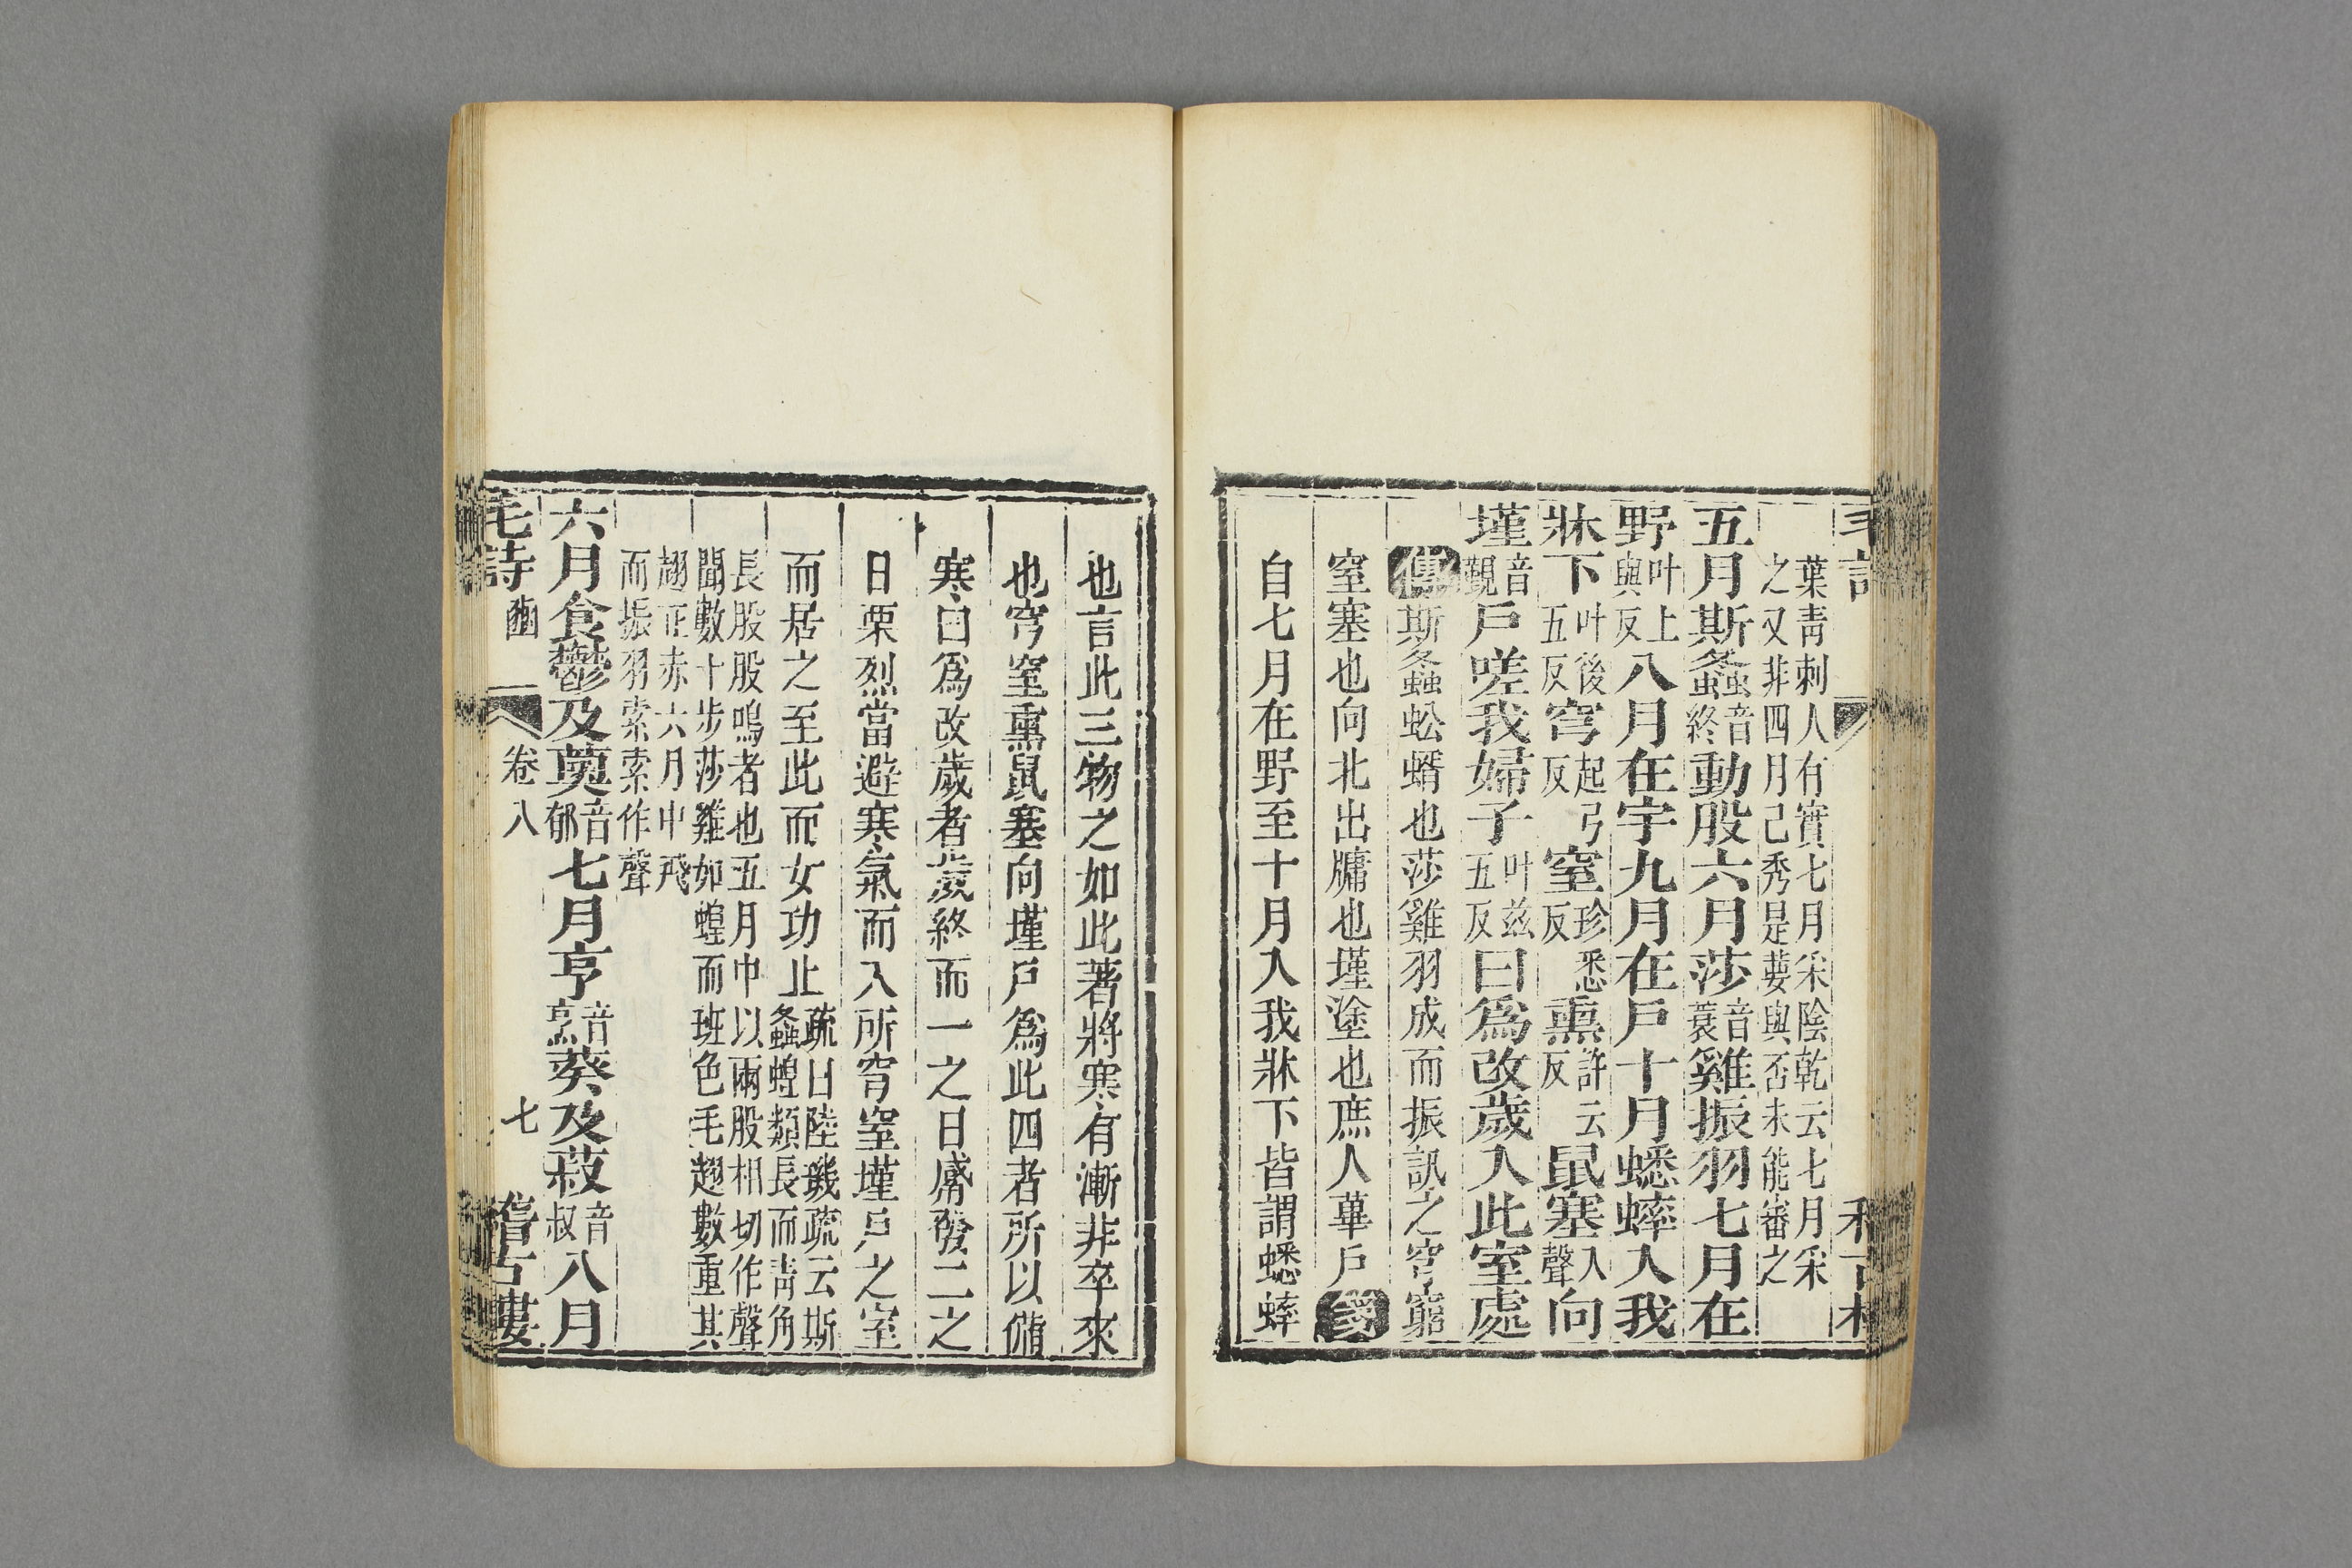 葉靑刺人有實七月采陰乾云七月采
之又非四月己秀是葽與否未能審之
五月斯螽音終動股六月莎音蓑雞振羽七月在
野叶上與反八月在宇九月在戶十月蟋蟀入我
牀下叶後五反穹起弓反窒珍悉反熏許云反鼠塞入聲向
墐音覲戶嗟我婦子叶茲五反曰爲改歲入此室處
傳斯螽蚣蝑也莎雞羽成而振訊之穹窮
窒塞也向北出牖也墐塗也庶人蓽戶箋
自七月在野至十月入我牀下皆謂蟋蟀
也言此三物之如此著將寒有漸非卒來
也穹窒熏鼠塞向墐戶爲此四者所以備
寒曰爲改歲者歲終而一之日觱發二之
日栗烈當避寒氣而入所穹窒墐戶之室
而居之至此而女功止疏曰陸璣疏云斯
螽蝗類長而靑角
長股股鳴者也五月中以兩股相切作聲
聞數十步莎雞如蝗而班色毛翅數重其
翅正赤六月中飛
而振羽索索作聲
六月食鬱及薁音郁七月亨音烹葵及菽音叔八月
毛詩 豳 卷八 七 稽古樓